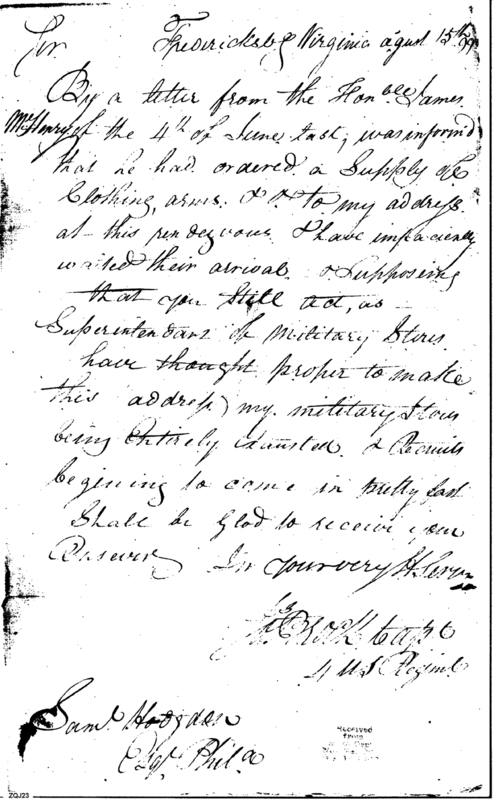 Sir Fredericksbg Virginia agust 15th 99
By a letter from the Honble James
McHenry of the 4th of June last, was inform'd
that he had ordered a Supply of
Clothing, arms. & & to my address
at this rendezvous I have impaciently
waited their arrival & Supposing
that you Still act, as
Superintendant of Military Stores
have thought proper to make
this address) my military Stores
being Entirely Exausted. & Recruits
begining to come in pretty fast
Shall be Glad to receive your
Answer Sir your very H Servn
Capt
4 US Regimt
Saml Hodgden
Esqr Phila
Received
from
ZQJ23